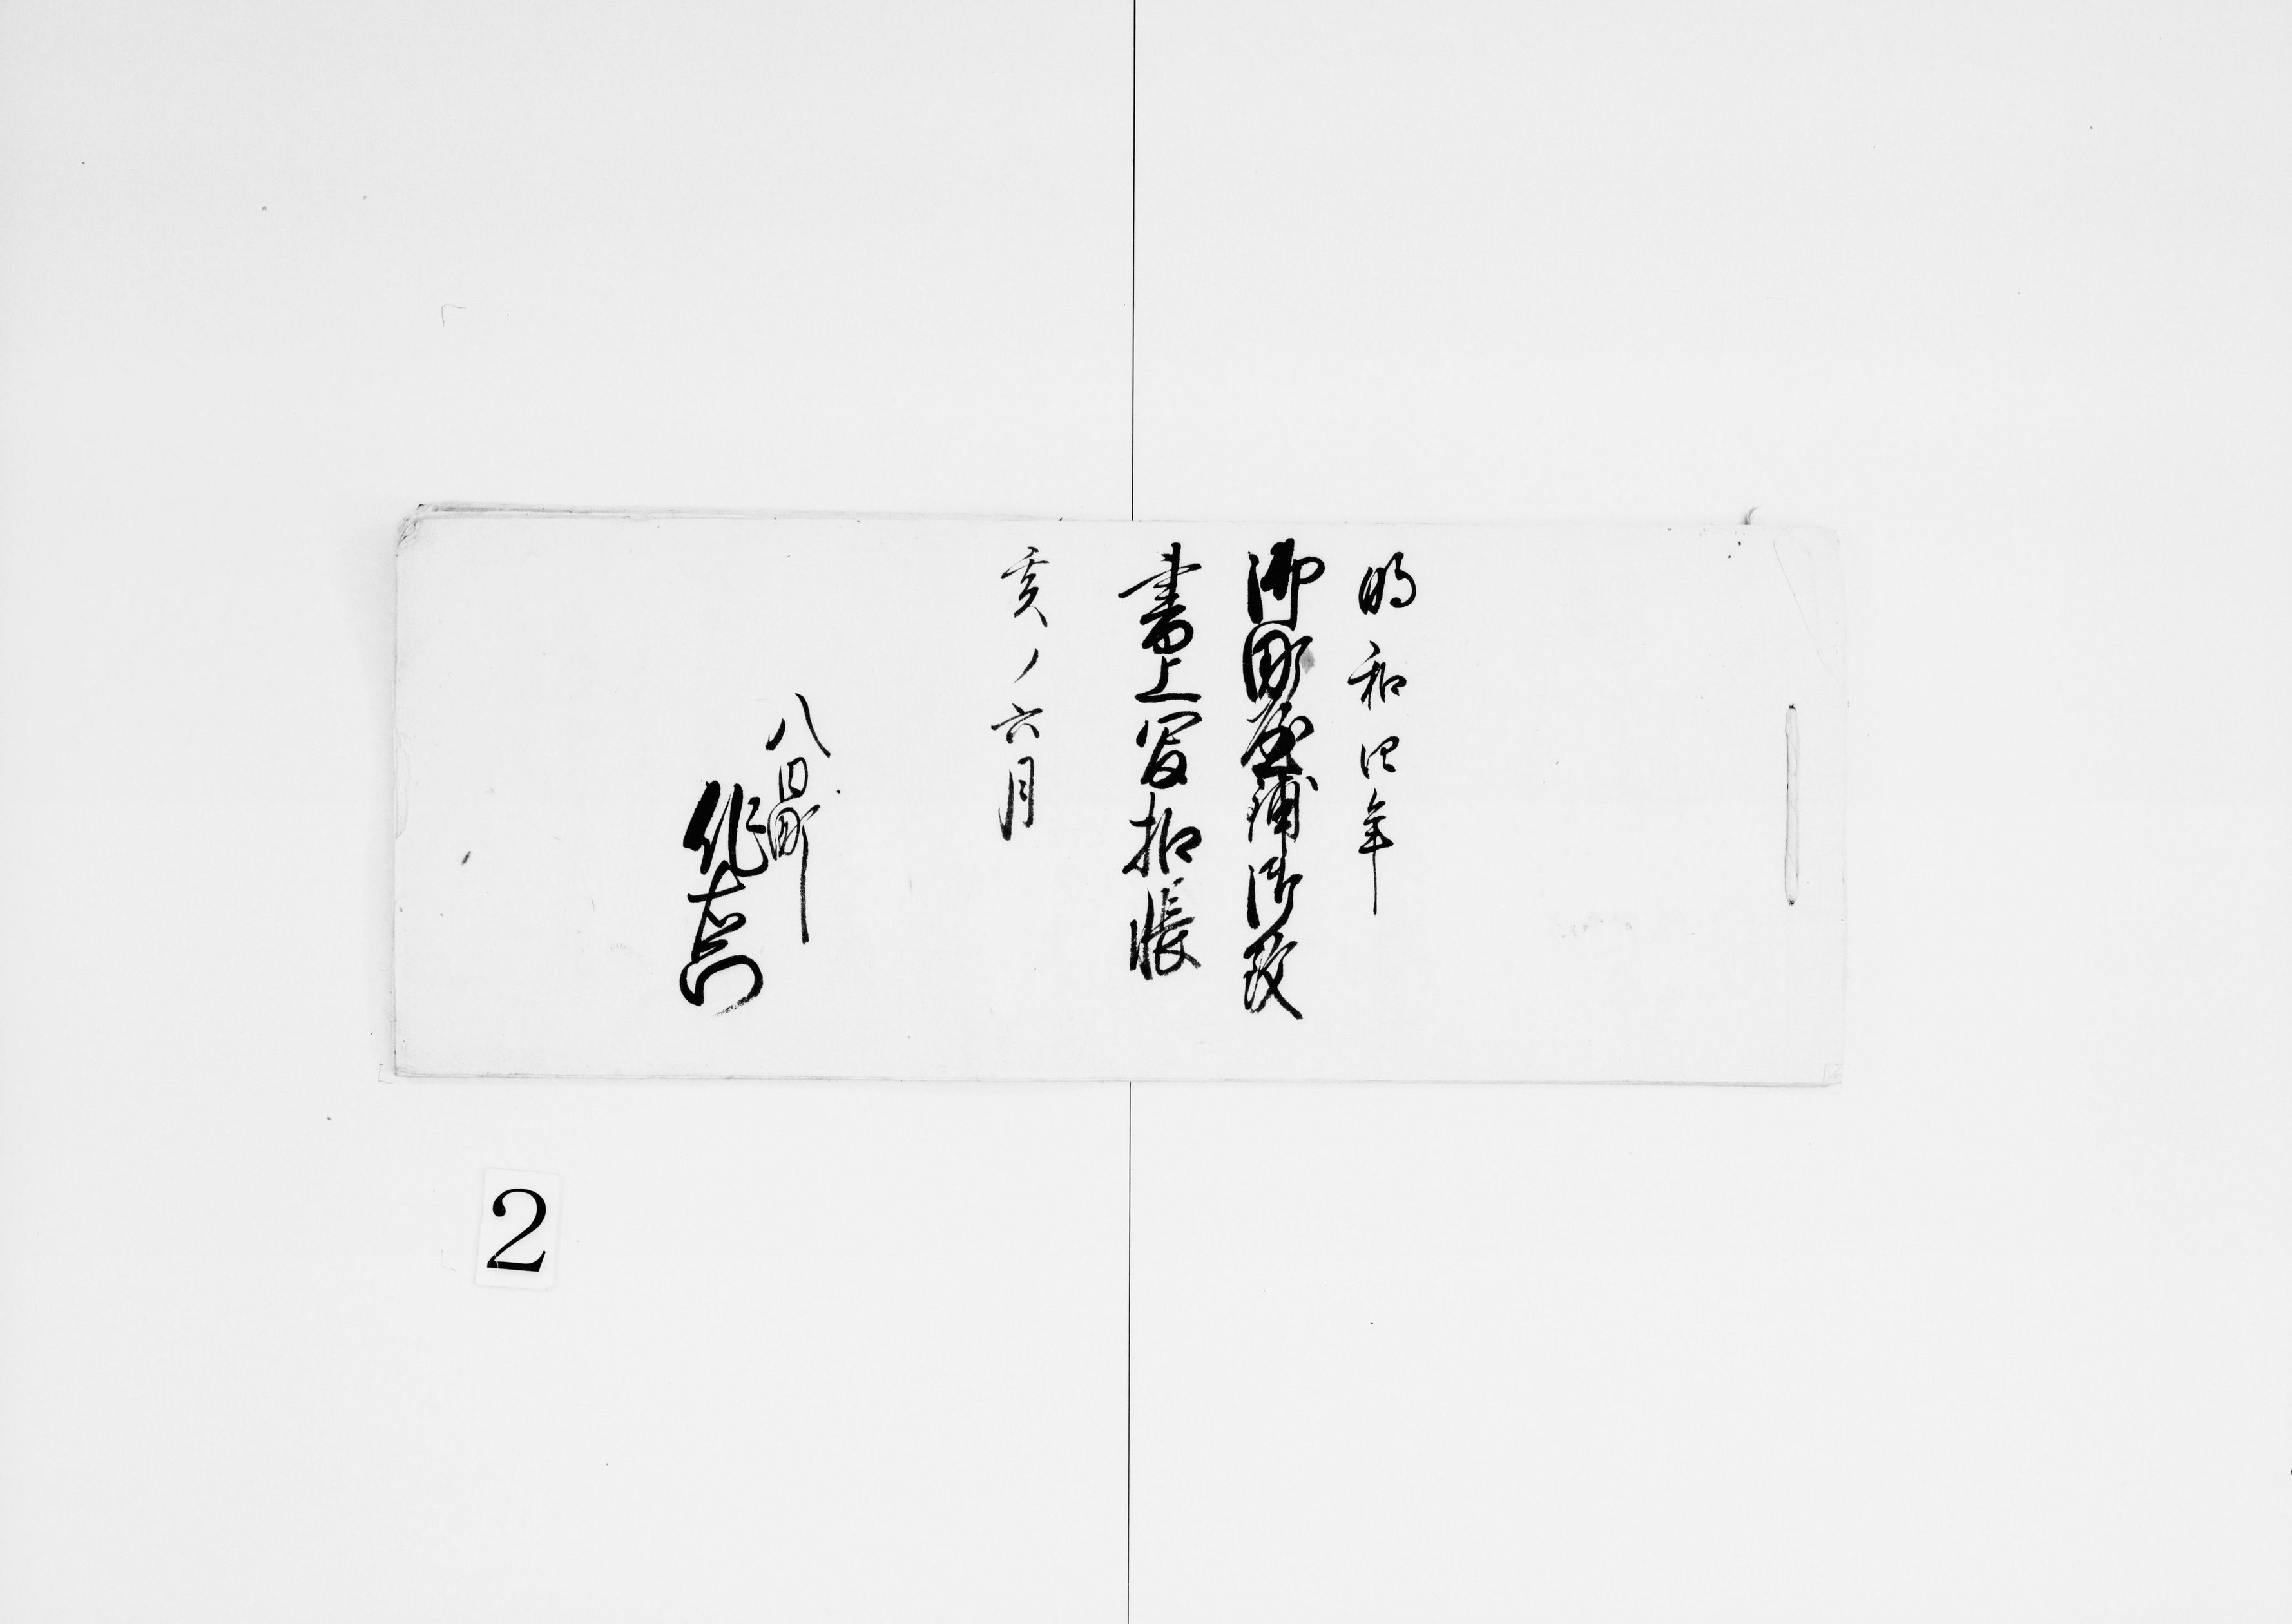 明和四年
御町屋鋪御改
書上写扣帳
亥ノ六月
八日町
作左衛門
2